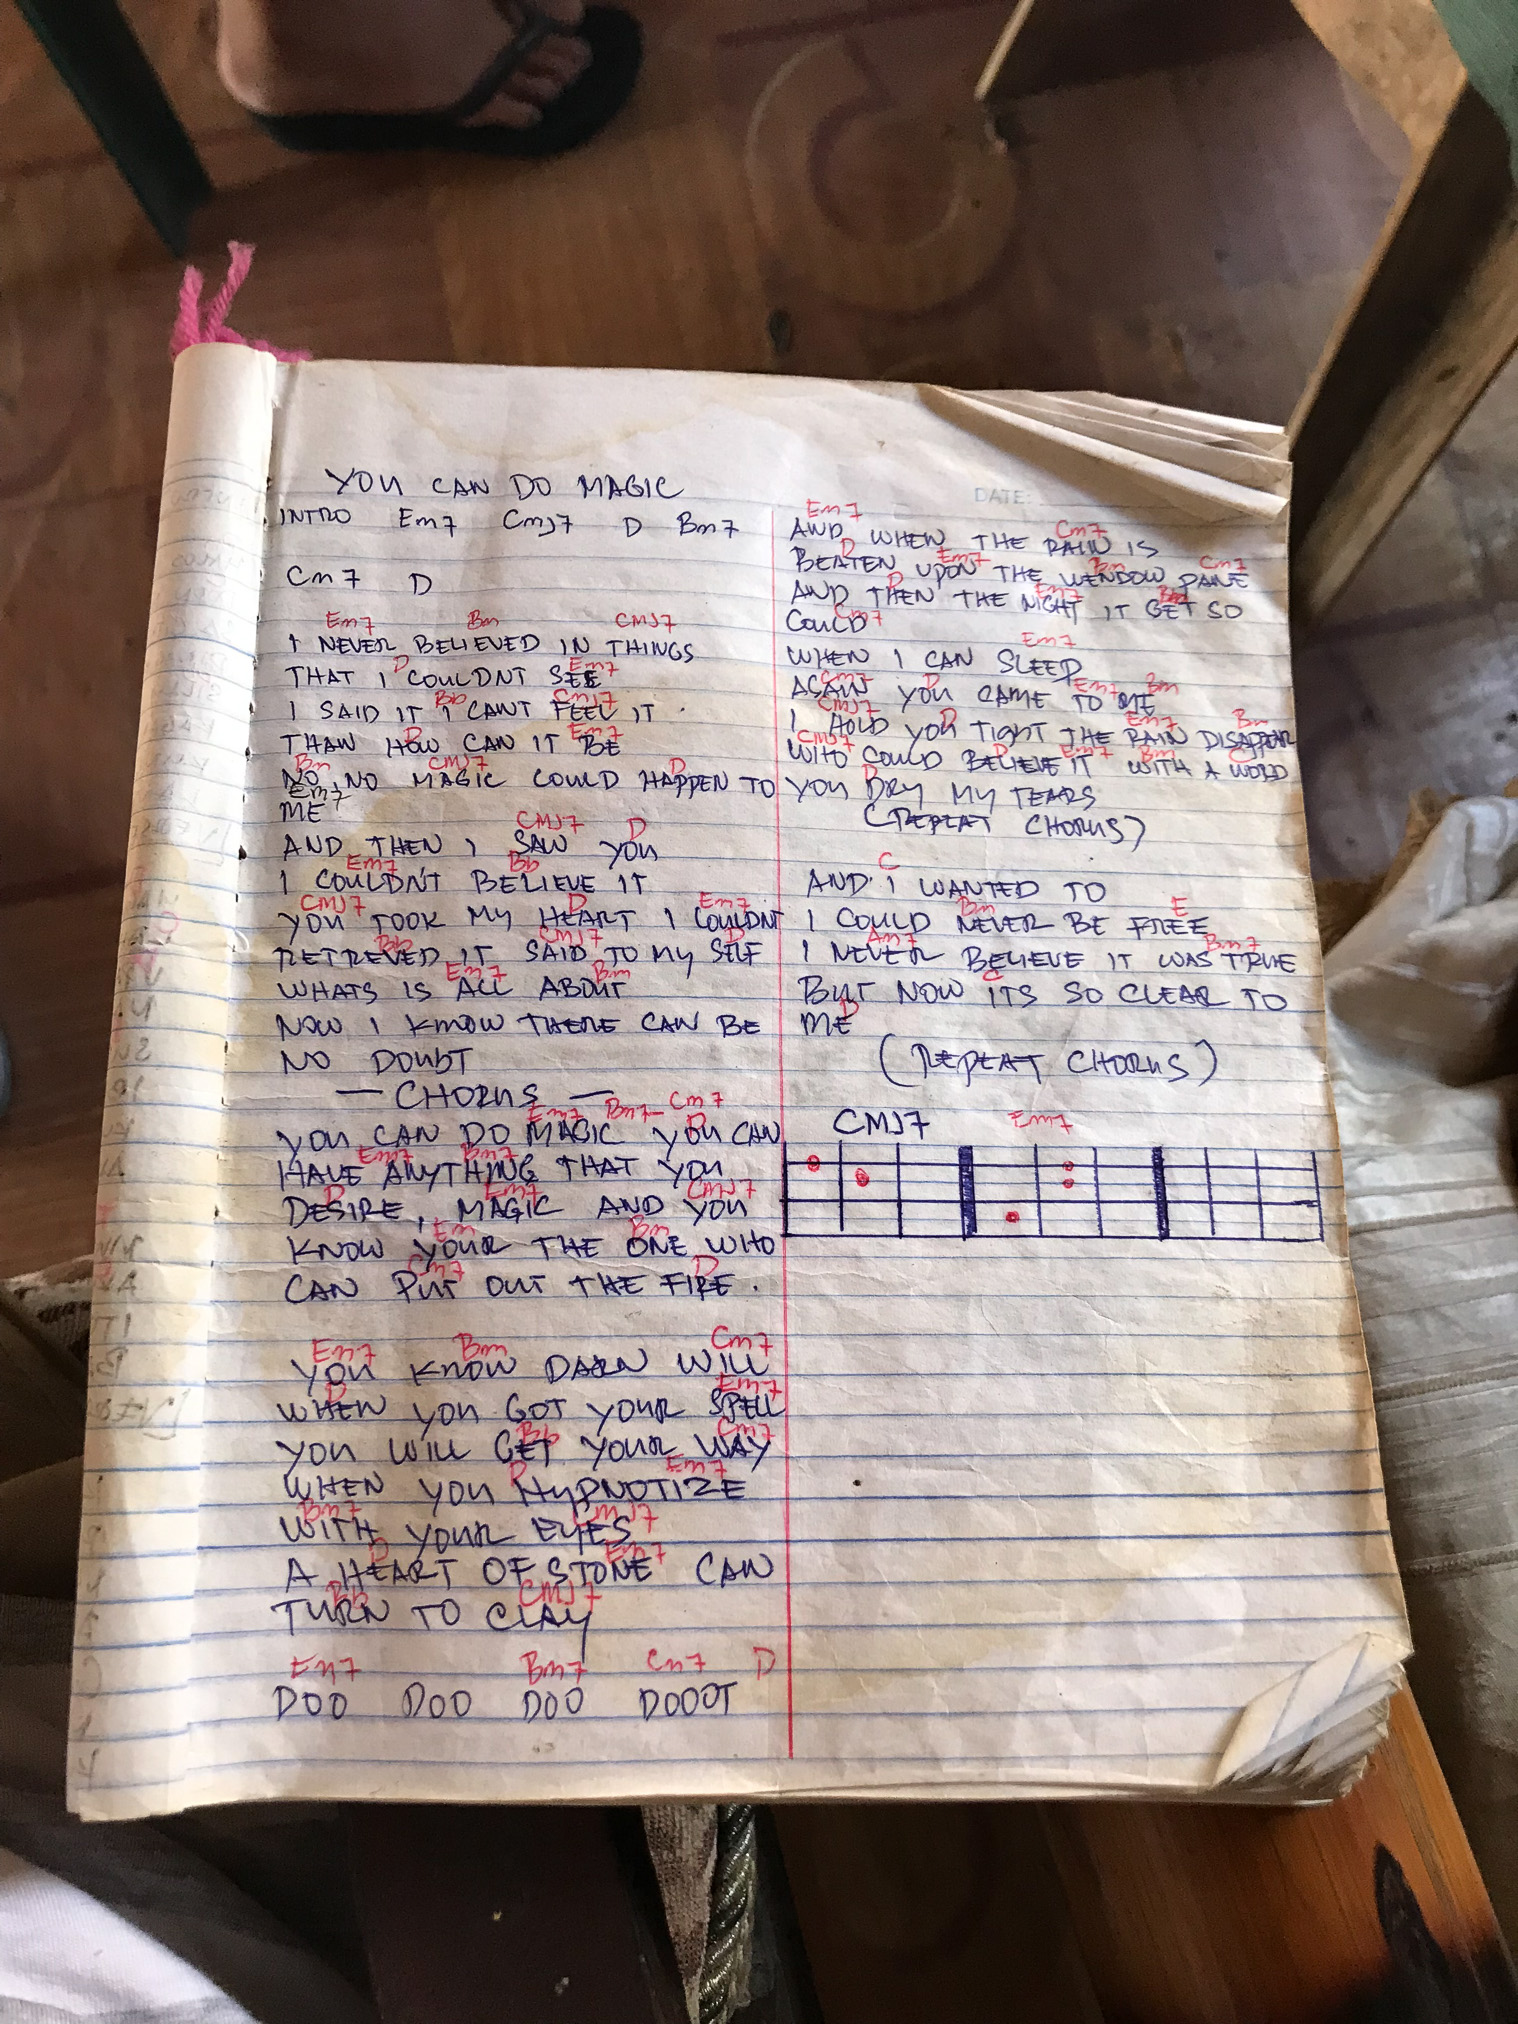 YOU CAN DO MAGIC
INTRO Em7 CMJ7 D Bm7
Cm7 D
Em7 Bm CMJ7
I NEVER BELIEVED IN THINGS
D Em7
THAT I COULDNT SEE
Bb CMJ7
I SAID IT I CANT FEEL IT
D Em7
THAN HOW CAN IT BE
Bm CMJ7 D
NO NO MAGIC COULD HAPPEN TO
Em7
ME
CMJ7 D
AND THEN I SAW YOU
Em7 Bb
I COULDN'T BELIEVE IT
CMJ7 D Em7
YOU TOOK MY HEART I COULDNT
Bb CMJ7 D
RETREVED IT SAID TO MY SELF
Em7 Bm
WHATS IS ALL ABOUT
NOW I KNOW THERE CAN BE
NO DOUBT
— CHORUS —
Em7 Bm7 Cm7
YOU CAN DO MAGIC YOU CAN
D
Em7 Bm7
HAVE ANYTHING THAT YOU
D Em7 CMJ7
DESIRE, MAGIC AND YOU
Em Bm
KNOW YOUR THE ONE WHO
Cm7 D
CAN PUT OUT THE FIRE.
Em7 Bm Cm7
YOU KNOW DARN WILL
D Em7
WHEN YOU GOT YOUR SPELL
Bb Cm7
YOU WILL GET YOUR WAY
D Em7
WHEN YOU HYPNOTIZE
Bm7 CMJ7
WITH YOUR EYES
D Em7
A HEART OF STONE CAN
Bb CMJ7
TURN TO CLAY
Em7 Bm7 Cm7 D
DOO DOO DOO DOOOT
DATE:
Em7 Cm7
AND WHEN THE RAIN IS
D Em7 Bm Cm7
BEATEN UPON THE WENDOW PANE
D Em7 Bm
AND THEN THE NIGHT IT GET SO
Cm7
COULD
Em7
WHEN I CAN SLEEP
Cm7 D Em7 Bm
AGAIN YOU CAME TO ME
CMJ7 D Em7 Bm
I HOLD YOU TIGHT THE RAIN DISAPPEAR
CMJ7 D Em7 Bm C
WHO COULD BELIEVE IT WITH A WORD
D
YOU DRY MY TEARS
(REPEAT CHORUS)
C
AND I WANTED TO
Bm E
I COULD NEVER BE FREE
Am7 Bm7
I NEVER BELIEVE IT WAS TRUE
C
BUT NOW ITS SO CLEAR TO
D
ME
(REPEAT CHORUS)
CMJ7 Em7